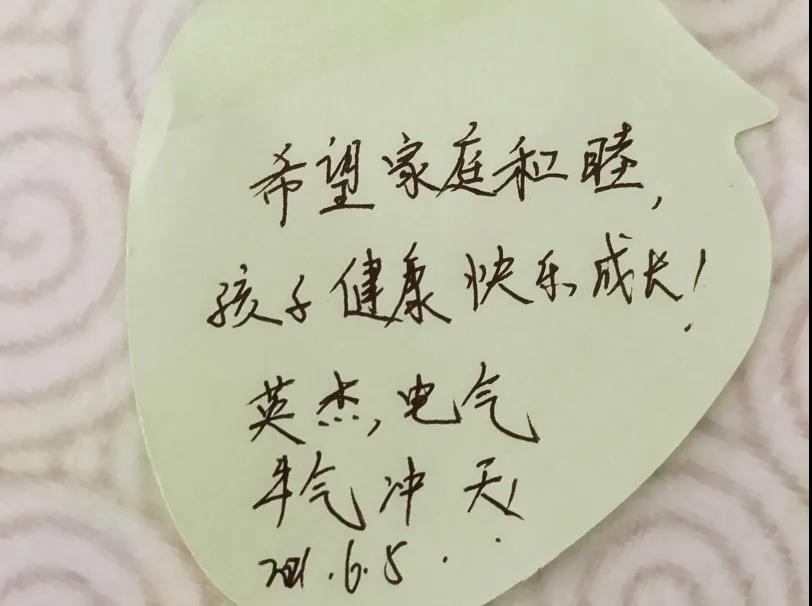 希望家庭和睦,
孩子健康快乐成长!
英杰,电气
牛气冲天!
2021.6.5.